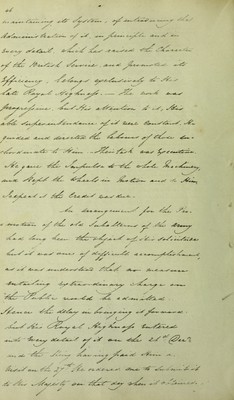 maintaining its System, of introducing that
Administration of it, in principle and in
every detail which has raised the Character
of the British Service and promoted its
Efficiency, belongs exclusively to His
late Royal Highness. — The work was
progressive, but His Attention to it, His
able Superintendance of it were constant. He
guided and directed the labours of those Sub
ordinate to Him. Their task was Executive
He gave the Impulse to the whole Machinery
and kept the Wheels in Motion and to Him
I repeat is the Credit was due.
An arrangement for the Pro
motion of the old Subalterns of the Army
had long been the object of His solicitude
but it was one of difficult accomplishment,
as it was understood that no measure
entailing extraordinary charge on
the Public would be admitted.
Hence the delay in bringing it forward.
but His Royal Highness entered
into every detail of it on the 26th Decr.
and the King having paid Him a
Visit on the 27th He ordered me to Submit it
to His Majesty on that day when at